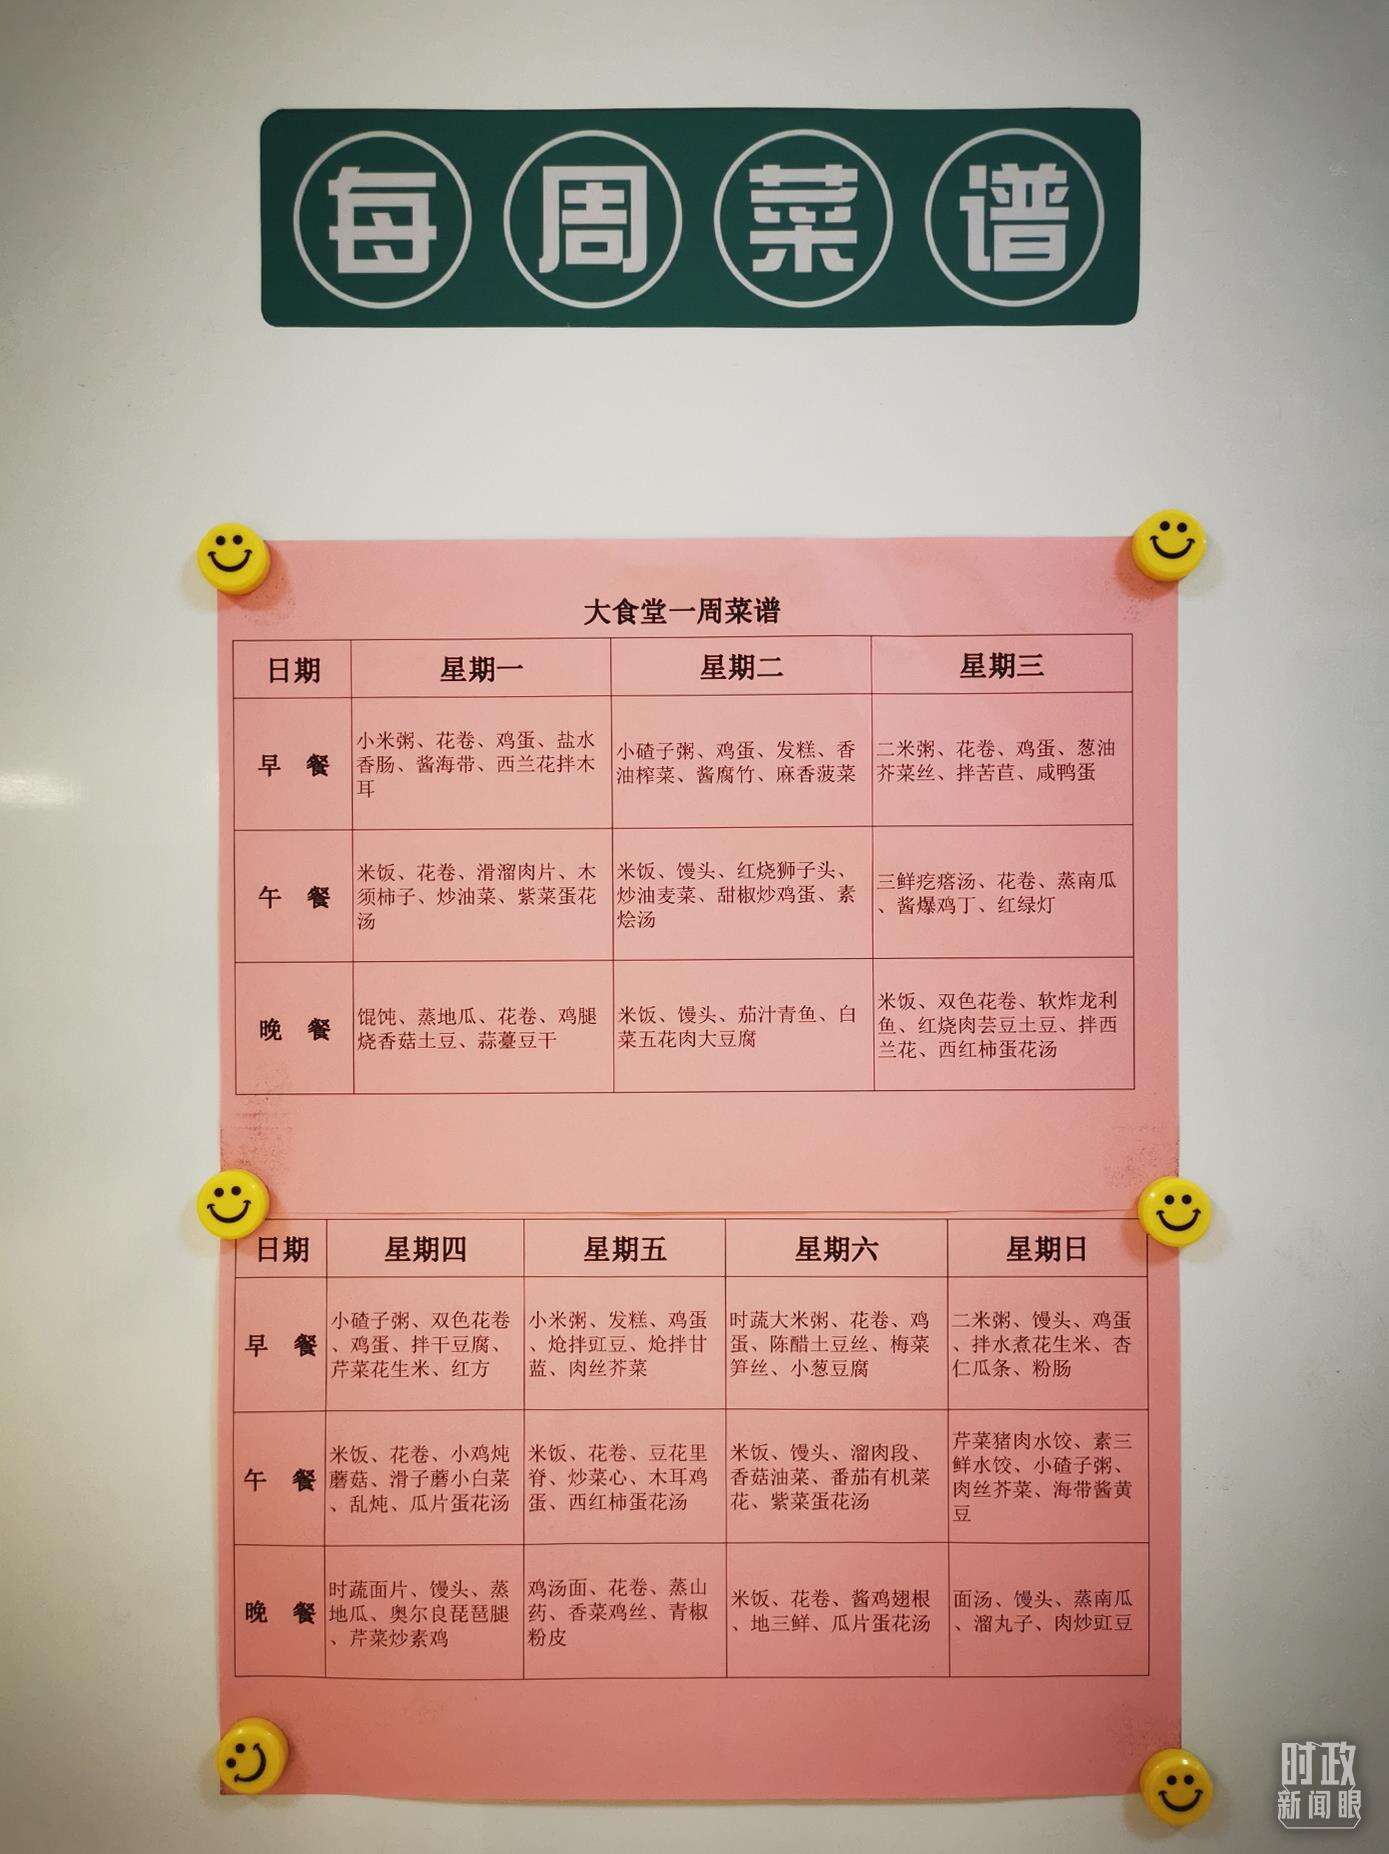 每周菜谱
大食堂一周菜谱
日期 星期一 星期二 星期三
早 餐
小米粥、花卷、鸡蛋、盐水
香肠、酱海带、西兰花拌木
耳
小碴子粥、鸡蛋、发糕、香
油榨菜、酱腐竹、麻香菠菜
二米粥、花卷、鸡蛋、葱油
芥菜丝、拌苦苣、咸鸭蛋
午 餐
米饭、花卷、滑溜肉片、木
须柿子、炒油菜、紫菜蛋花
汤
米饭、馒头、红烧狮子头、
炒油麦菜、甜椒炒鸡蛋、素
烩汤
三鲜疙瘩汤、花卷、蒸南瓜
、酱爆鸡丁、红绿灯
晚 餐
馄饨、蒸地瓜、花卷、鸡腿
烧香菇土豆、蒜薹豆干
米饭、馒头、茄汁青鱼、白
菜五花肉大豆腐
米饭、双色花卷、软炸龙利
鱼、红烧肉芸豆土豆、拌西
兰花、西红柿蛋花汤
日期 星期四 星期五 星期六 星期日
早 餐
小碴子粥、双色花卷
、鸡蛋、拌干豆腐、
芹菜花生米、红方
小米粥、发糕、鸡蛋
、炝拌豇豆、炝拌甘
蓝、肉丝芥菜
时蔬大米粥、花卷、鸡
蛋、陈醋土豆丝、梅菜
笋丝、小葱豆腐
二米粥、馒头、鸡蛋
、拌水煮花生米、杏
仁瓜条、粉肠
午 餐
米饭、花卷、小鸡炖
蘑菇、滑子蘑小白菜
、乱炖、瓜片蛋花汤
米饭、花卷、豆花里
脊、炒菜心、木耳鸡
蛋、西红柿蛋花汤
米饭、馒头、溜肉段、
香菇油菜、番茄有机菜
花、紫菜蛋花汤
芹菜猪肉水饺、素三
鲜水饺、小碴子粥、
肉丝芥菜、海带酱黄
豆
晚 餐
时蔬面片、馒头、蒸
地瓜、奥尔良琵琶腿
、芹菜炒素鸡
鸡汤面、花卷、蒸山
药、香菜鸡丝、青椒
粉皮
米饭、花卷、酱鸡翅根
、地三鲜、瓜片蛋花汤
面汤、馒头、蒸南瓜
、溜丸子、肉炒豇豆
时政
新闻眼